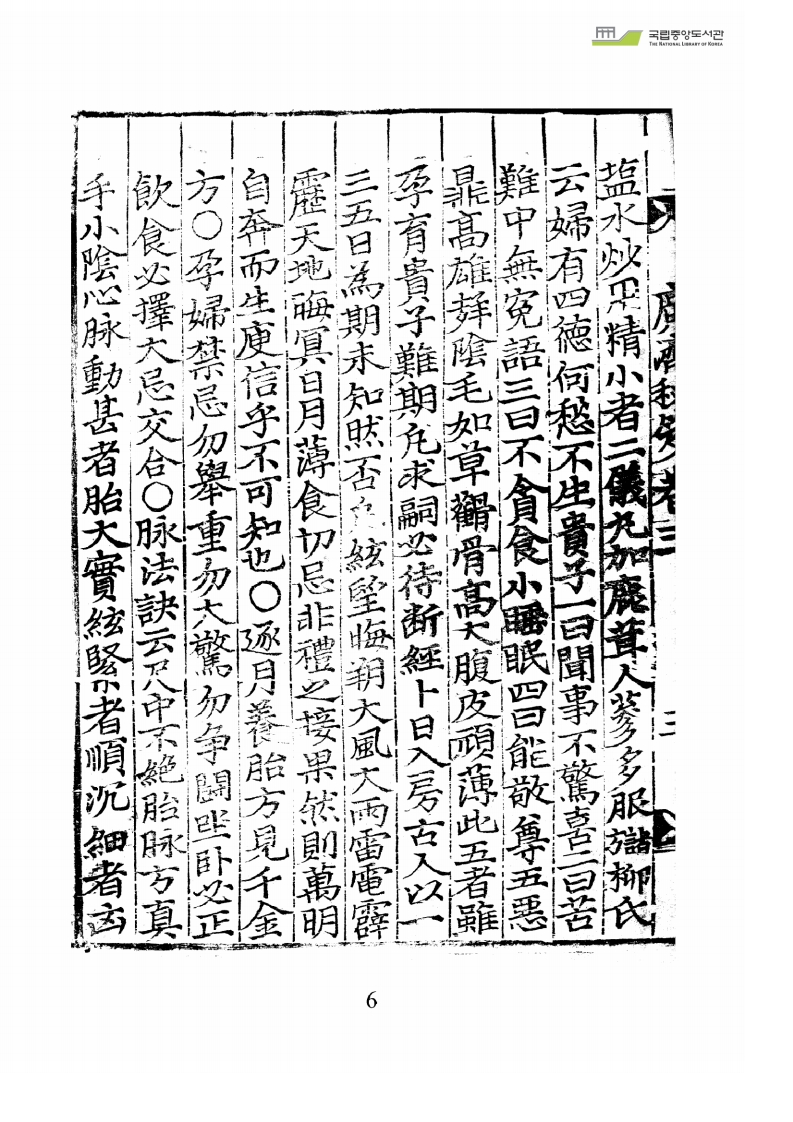 국립중앙도서관
THE NATIONAL LIBRARY OF KOREA
廣濟秘笈卷三
三
塩水炒用精小者二儀丸加鹿茸人蔘多服○柳氏
云婦有四德何愁不生貴子一曰聞事不驚喜二曰苦
難中無寃語三曰不貪食小睡眠四曰能敬尊五惡
鼎高雄 陰毛如草 骨高大腹皮頑薄此五者雖
孕育貴子難期凡求嗣必待断經卜日入房古人以一
三五日為期未知然否 弦望晦朔大風大雨雷電霹
靂天地晦冥日月薄食切忌非禮之接果然則萬明
自奔而生庾信乎不可知也○逐月養胎方見千金
方○孕婦禁忌勿舉重勿大驚勿争鬪坐卧必正
飲食必擇大忌交合○脉法訣云尺中不絶胎脉方真
手小陰心脉動甚者胎大實絃緊者順沉細者凶
6